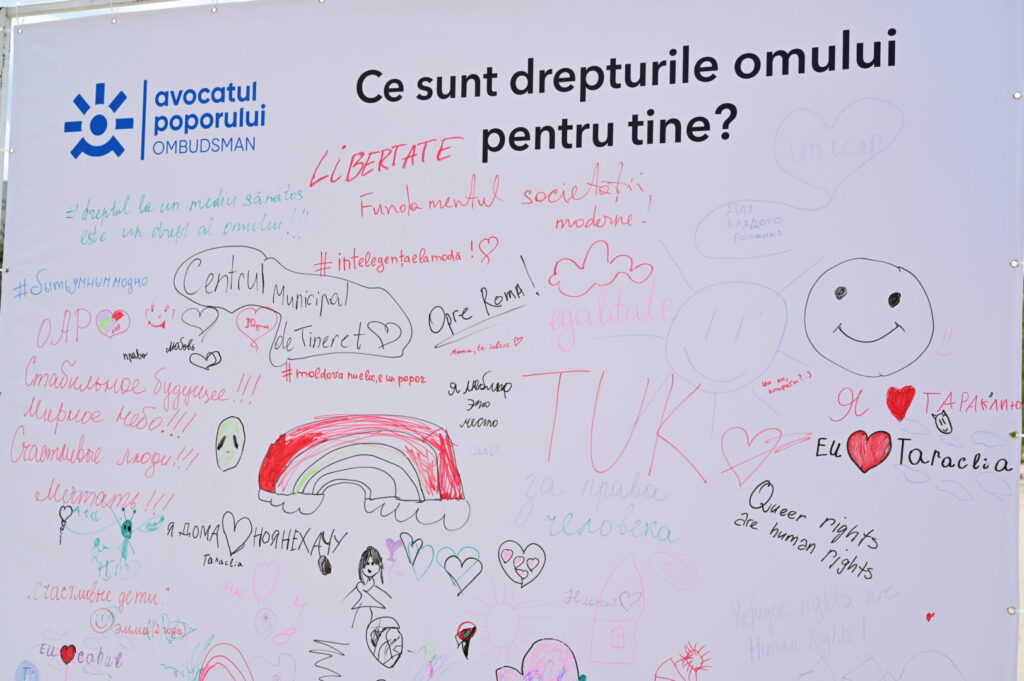 avocatul
poporului
OMBUDSMAN
Ce sunt drepturile omului
pentru tine?
LIBERTATE
unicef
Fundamentul societății
moderne!
# dreptul la un mediu sănătos
este un drept al omului!!!
ДЛЯ
КАЖДОГО
РЕБЕНКА
#intelegențaelamodă!
#бытьумныммодно
Centrul
Municipal
de Tineret
Opre Roma!
egalitate
OAP
право
любовь
#moldovanuelxe,e un popor
Стабильное будущее!!!
Мирное небо!!!
Счастливые люди!!!
Мечтать!!!
я люблю
это
место
TUK
Я ТАРАКЛИЮ
EU Taraclia
за права
человека
Queer rights
are human rights
Я ДОМА НОЯНЕХАЧУ
Taraclia
Настя
"счастливые дети"
Эмма (2 года)
Refugee rights are
Human Rights!
EU